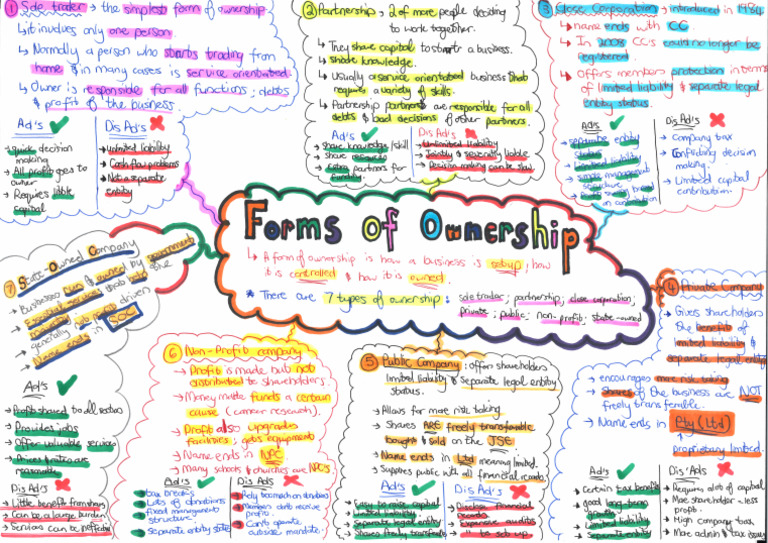 Forms of Ownership
↳ A form of ownership is how a business is setup; how
it is controlled & how it is owned.
* There are 7 types of ownership: sole trader; partnership; close corporation;
private; public; non-profit; state-owned
① Sole trader → the simplest form of ownership
↳ it involves only one person.
↳ Normally a person who starts trading from
home & in many cases is service orientated.
↳ Owner is responsible for all functions; debts
& profit of the business.
Ad's
→ quick decision
making
→ All profit goes to
owner
→ Requires little
capital
Dis Ad's
→ Unlimited liability
→ Cash flow problems
→ Not a separate
entity
② Partnership → 2 of more people deciding
to work together.
↳ They share capital to start a business.
↳ Share knowledge.
↳ Usually a service orientated business that
requires a variety of skills.
↳ Partnership partners are responsible for all
debts & bad decisions of other partners.
Ad's
→ share knowledge/skill
→ share resources
→ extra partners for
funding
Dis Ad's
→ Unlimited liability
→ Jointly & severally liable
→ Decision-making can be slow
③ Close Corporation → introduced in 1984
↳ name ends with CC
↳ In 2008 CC's could no longer be
registered.
↳ Offers members protection in terms
of limited liability & separate legal
entity status.
Ad's
→ separate entity
status
→ limited liability
→ simple management
structure
on contribution
Dis Ad's
→ Company tax
→ Conflicting decision
making
→ Limited capital
contribution.
④ Private Company
→ Gives shareholders
the benefit of
limited liability &
separate legal entity
→ encourages more risk taking
→ Shares of the business are NOT
freely transferable.
→ Name ends in Pty (Ltd)
proprietary limited.
Ad's
→ Certain tax benefits
→ good long-term
growth
→ Limited liability
→ Separate entity
Dis'Ads
→ Requires alot of capital
→ More shareholder = less
profit.
→ High company tax
→ More admin & tax issues
⑤ Public Company: offers shareholders
limited liability & Separate legal entity
status.
→ Allows for more risk taking
→ Shares ARE freely transferable
bought & sold on the JSE.
→ Name ends in Ltd meaning limited.
→ Supplies public with all financial records.
Ad's
→ Easy to raise capital
→ Limited liability
→ Separate legal entity
→ Shares freely transferable
Dis Ad's
→ Disclose financial
records
→ Expensive audits
→ to set up
⑥ Non-Profit company
→ Profit is made but not
distributed to shareholders.
→ Money made funds a certain
cause (cancer research).
→ Profit also upgrades
facilities; gets equipment
→ Name ends in NPC
→ Many schools & churches are NPC's.
Ad's
→ tax breaks
→ Lots of donations
→ fixed management
structure
→ separate entity status
Dis Ads
→ Rely too much on donations
→ Members don't receive
profits.
→ Can't operate
outside mandate.
⑦ State-Owned Company
→ Businesses run & owned by government
→ Essential services that help the
→ generally not profit driven
→ Name ends in SOC
Ad's
→ Profit shared to all sectors
→ Provides jobs
→ Offer valuable services
→ Prices & rates are
reasonable
Dis Ad's
→ Little benefit from shares
→ Can be a large burden
→ Services can be ineffective